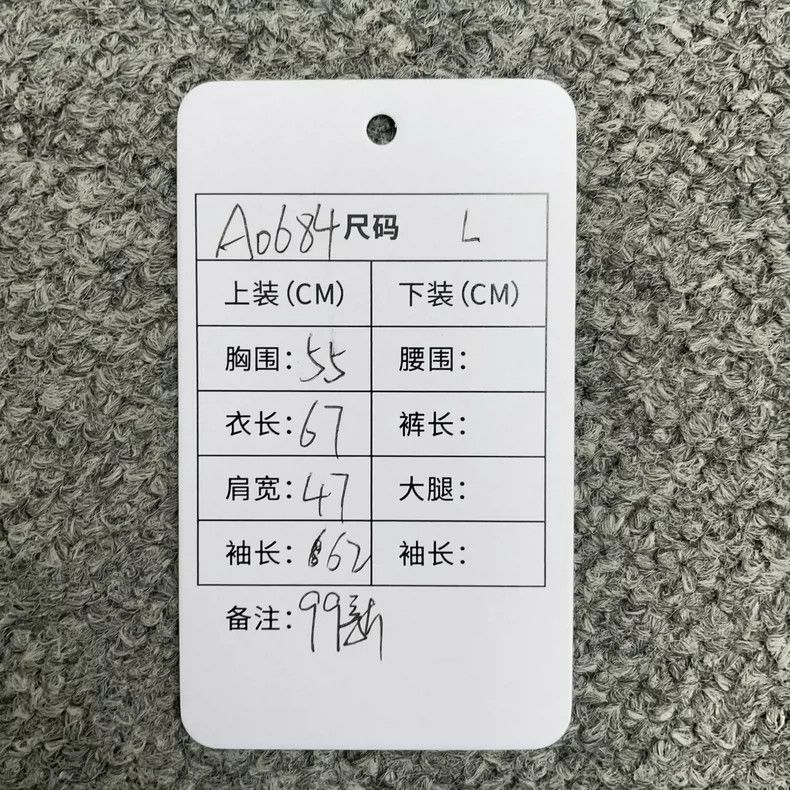 A0684 尺码 L
上装(CM) 下装(CM)
胸围:55 腰围:
衣长:67 裤长:
肩宽:47 大腿:
袖长:62 袖长:
备注:99新